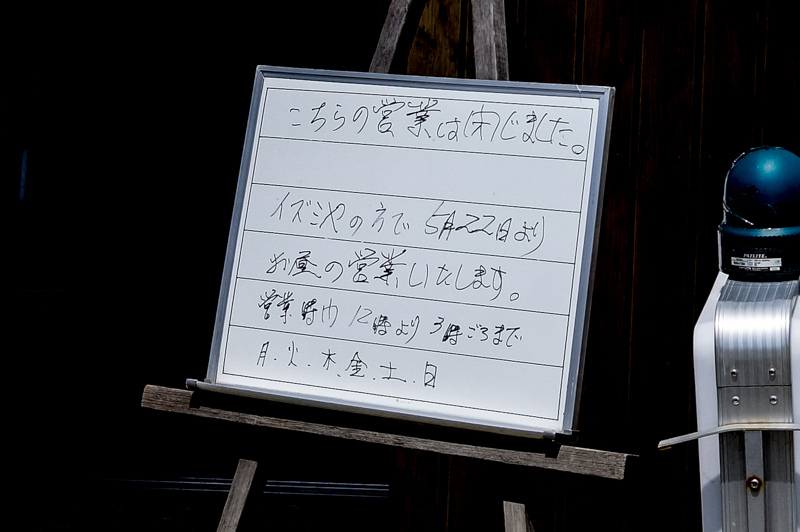 こちらの営業は閉じました。
イズミヤの方で 5月22日より
お昼の営業いたします。
営業時間 12時より 3時ごろまで
月.火.木.金.土.日
PATLITE